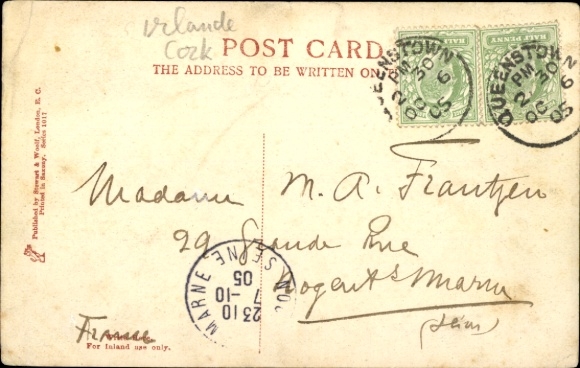 Irlande
Cork
POST CARD
THE ADDRESS TO BE WRITTEN ON
HALFPENNY
HALFPENNY
QUEENSTOWN
2 30
PM
OC 6
05
QUEENSTOWN
2 30
PM
OC 6
05
Published by Stewart & Woolf, London, E. C.
Printed in Saxony. Series 1017
Madame M. A. Frantzen
29 Grande Rue
Nogent s/ Marne
(Seine)
MARNE
SEINE
23 10
7 -10
05
France
For Inland use only.